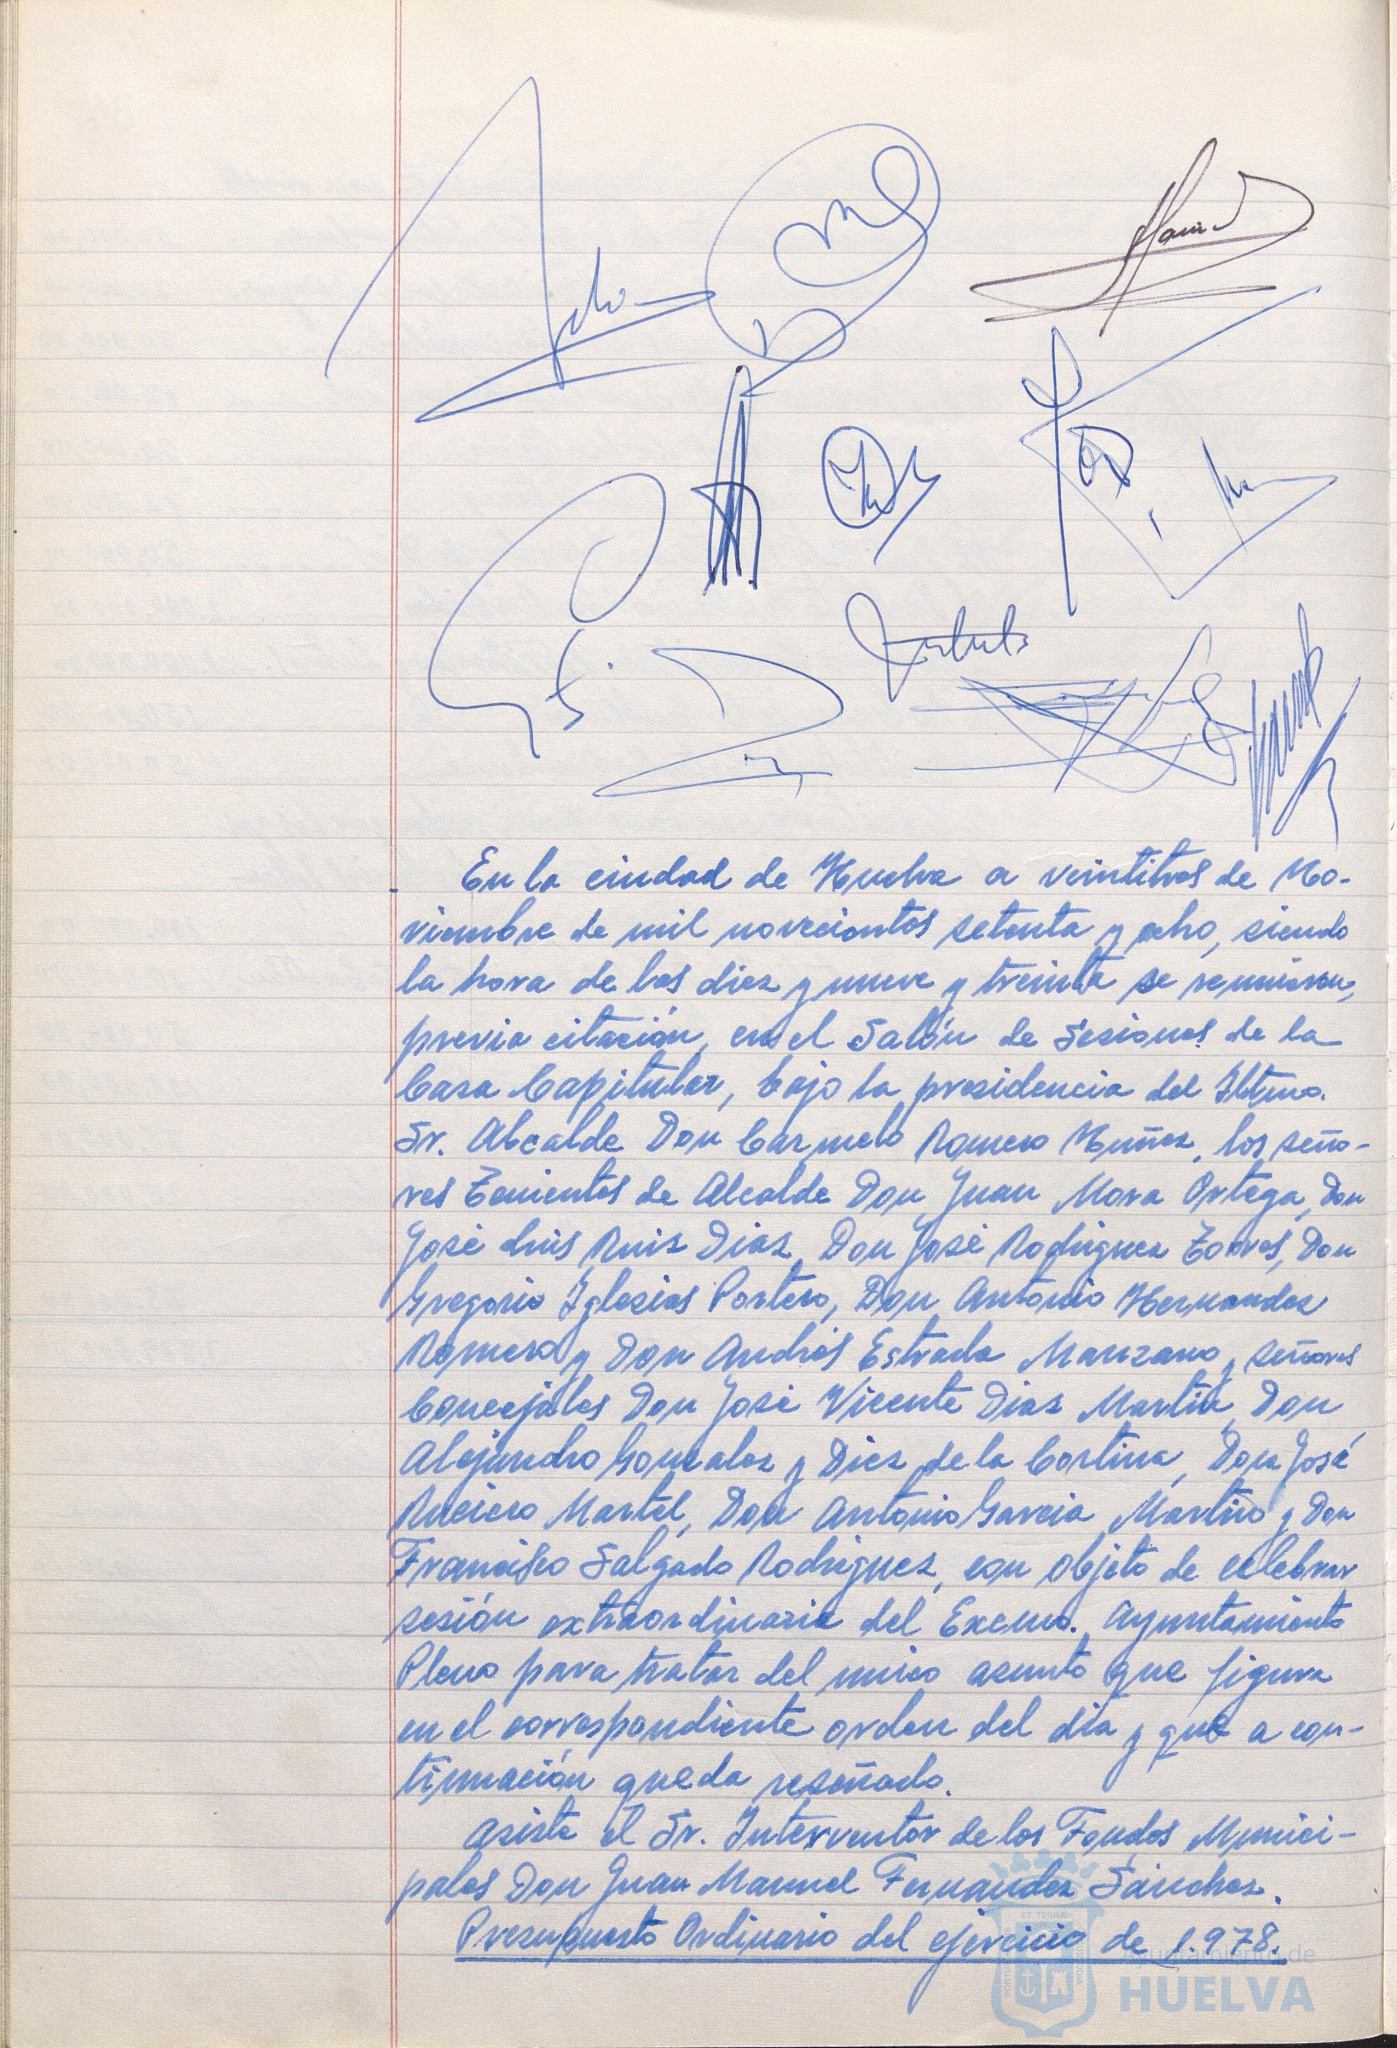 En la ciudad de Huelva a veintitres de No-
viembre de mil novecientos setenta y ocho, siendo
la hora de las diez y nueve y treinta se reunieron,
previa citación, en el Salón de Sesiones de la
Casa Capitular, bajo la presidencia del Iltmo.
Sr. Alcalde Don Carmelo Romero Muñoz, los seño-
res Tenientes de Alcalde Don Juan Mora Ortega, Don
José Luis Ruiz Diaz, Don José Rodriguez Torres, Don
Gregorio Iglesias Portero, Don Antonio Hernandez
Romero y Don Andrés Estrada Manzano y señores
Concejales Don José Vicente Diaz Martin, Don
Alejandro Gonzalez y Diez de la Cortina, Don José
Ruciero Martel, Don Antonio Garcia Martino y Don
Francisco Salgado Rodriguez, con objeto de celebrar
sesión extraordinaria del Excmo. Ayuntamiento
Pleno para tratar del unico asunto que figura
en el correspondiente orden del dia y que a con-
tinuación queda reseñado.
Asiste el Sr. Interventor de los Fondos Munici-
pales Don Juan Manuel Fernandez Sanchez.
Presupuesto Ordinario del ejercicio de 1.978.
Ayuntamiento de
HUELVA